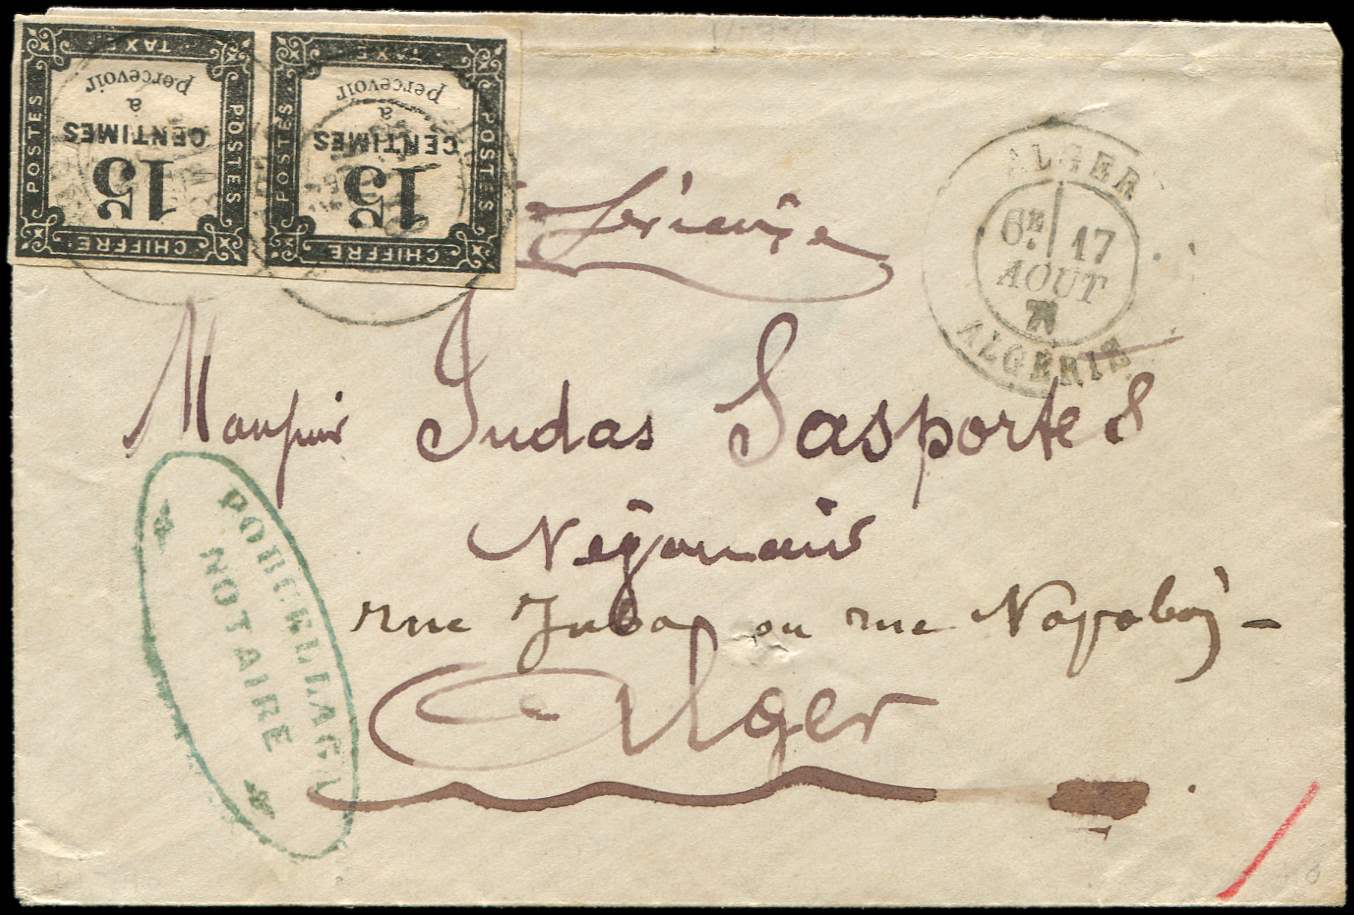 CHIFFRE
POSTES
15
CENTIMES
à
percevoir
POSTES
TAXE
CHIFFRE
POSTES
15
CENTIMES
à
percevoir
POSTES
TAXE
ALGER
6E 17
AOUT
ALGERIE
Monsieur Judas Sasportes
Négociant
rue Juba ou rue Napoléon
Alger
PORCELLAGA
NOTAIRE